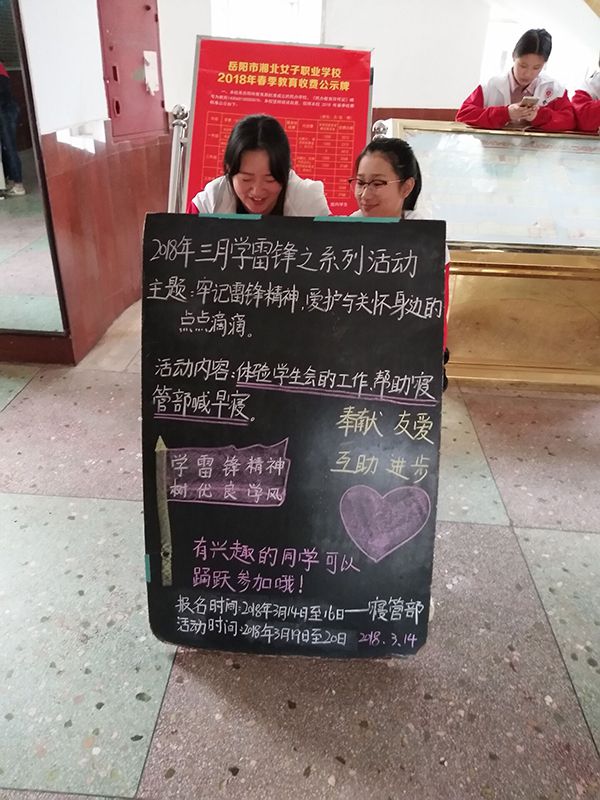 岳阳市湘北女子职业学校
2018年春季教育收费公示牌
2018年三月学雷锋之系列活动
主题:牢记雷锋精神,爱护与关怀身边的
点点滴滴。
活动内容:体验学生会的工作,帮助寝
管部喊早寝。
奉献 友爱
互助 进步
学雷锋精神
树优良学风
有兴趣的同学可以
踊跃参加哦!
报名时间:2018年3月14日至16日——寝管部
活动时间:2018年3月19日至20日 2018.3.14